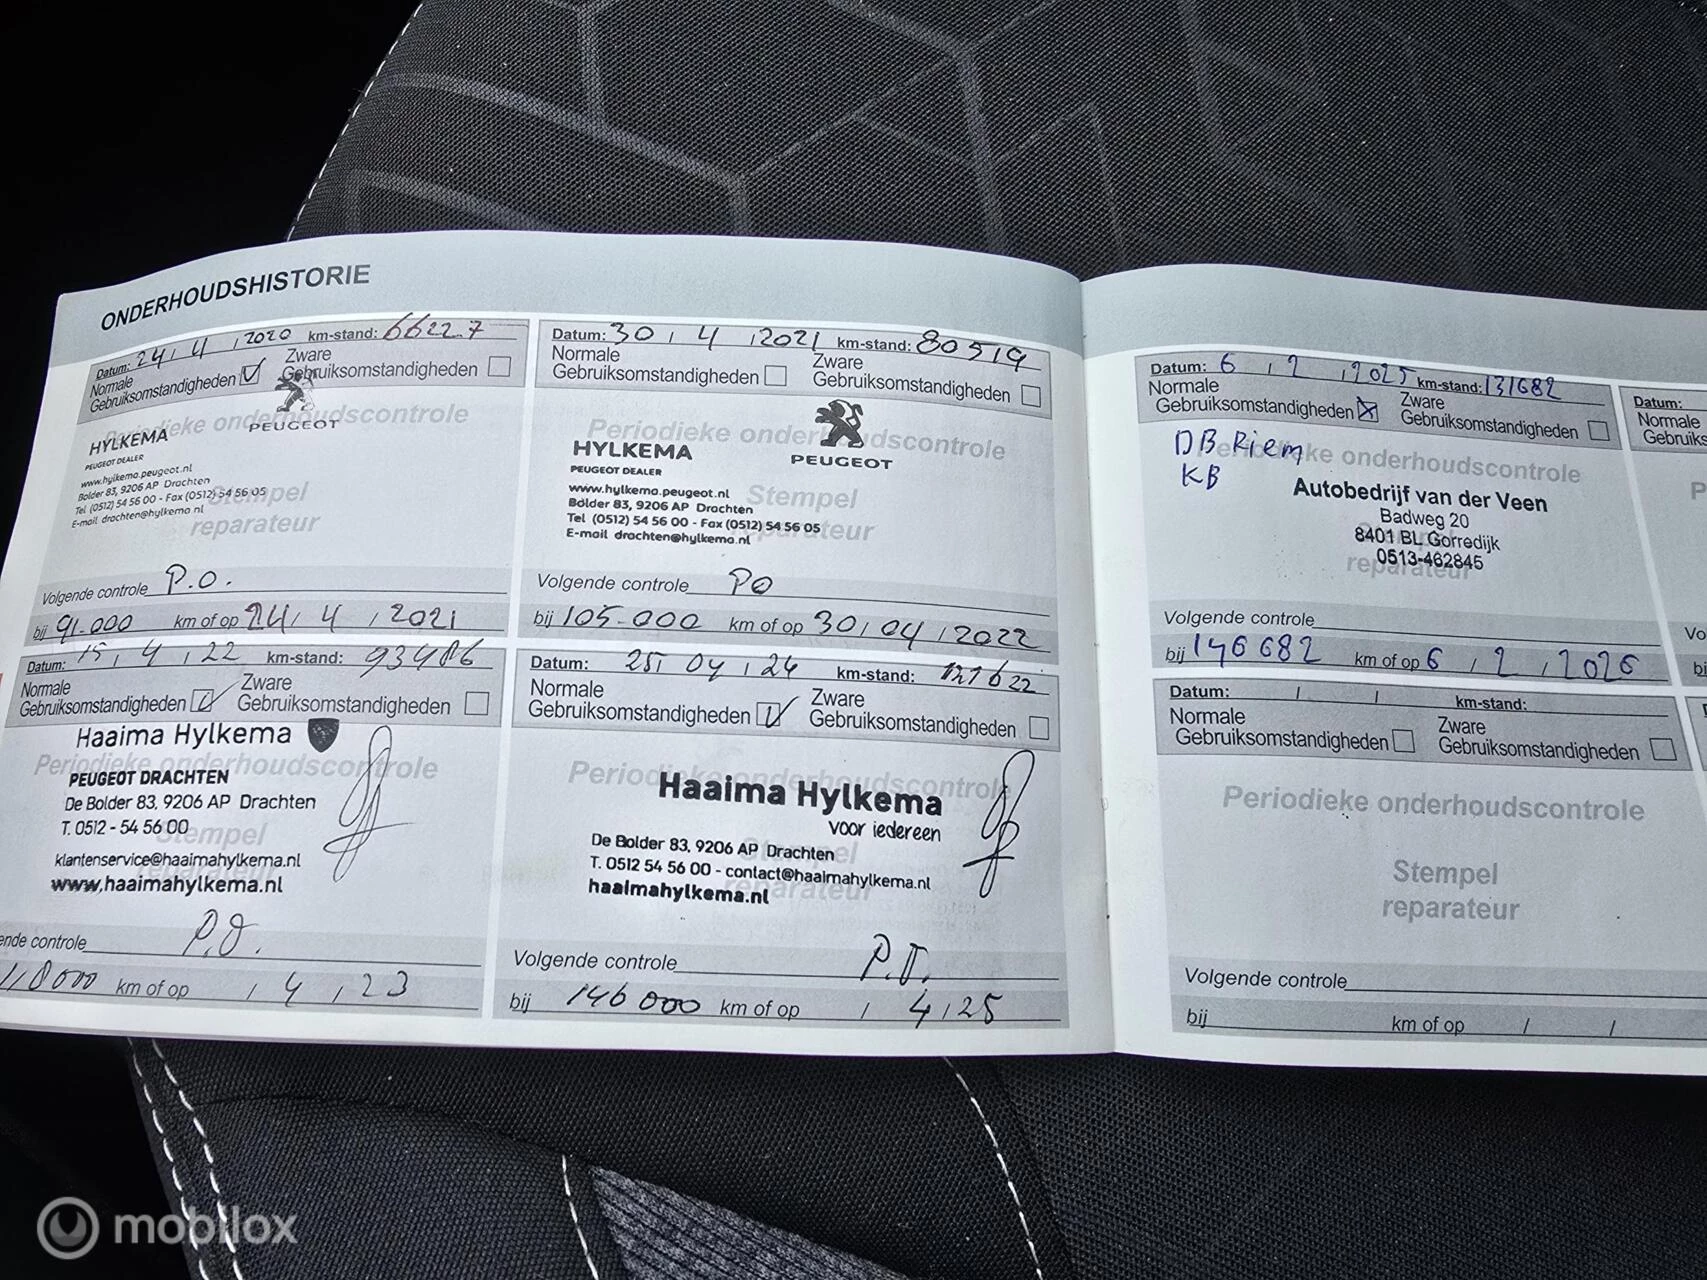 ONDERHOUDSHISTORIE
Datum: 24 / 4 / 2020 km-stand: 66227
Normale
Gebruiksomstandigheden
Zware
Gebruiksomstandigheden
Periodieke onderhoudscontrole
PEUGEOT
HYLKEMA
PEUGEOT DEALER
www.hylkema.peugeot.nl
Bolder 83, 9206 AP Drachten
Tel (0512) 54 56 00 - Fax (0512) 54 56 05
E-mail drachten@hylkema.nl
Stempel
reparateur
Volgende controle P.O.
bij 91.000 km of op 24 / 4 / 2021
Datum: 30 / 4 / 2021 km-stand: 80519
Normale
Gebruiksomstandigheden
Zware
Gebruiksomstandigheden
Periodieke onderhoudscontrole
PEUGEOT
HYLKEMA
PEUGEOT DEALER
www.hylkema.peugeot.nl
Bolder 83, 9206 AP Drachten
Tel (0512) 54 56 00 - Fax (0512) 54 56 05
E-mail drachten@hylkema.nl
Stempel
reparateur
Volgende controle PO
bij 105.000 km of op 30 / 04 / 2022
Datum: 15 / 4 / 22 km-stand: 93486
Normale
Gebruiksomstandigheden
Zware
Gebruiksomstandigheden
Periodieke onderhoudscontrole
Haaima Hylkema
PEUGEOT DRACHTEN
De Bolder 83, 9206 AP Drachten
T. 0512 - 54 56 00
klantenservice@haaimahylkema.nl
www.haaimahylkema.nl
Stempel
reparateur
ende controle P.O.
118000 km of op / 4 / 23
Datum: 25 / 04 / 24 km-stand: 121622
Normale
Gebruiksomstandigheden
Zware
Gebruiksomstandigheden
Periodieke onderhoudscontrole
Haaima Hylkema
voor iedereen
De Bolder 83, 9206 AP Drachten
T. 0512 54 56 00 - contact@haaimahylkema.nl
haaimahylkema.nl
Stempel
reparateur
Volgende controle P.O.
bij 146000 km of op / 4 / 25
Datum: 6 / 2 / 2025 km-stand: 131682
Normale
Gebruiksomstandigheden
Zware
Gebruiksomstandigheden
DB Riem
KB
Periodieke onderhoudscontrole
Autobedrijf van der Veen
Badweg 20
8401 BL Gorredijk
0513-462845
reparateur
Volgende controle
bij 146682 km of op 6 / 2 / 2026
Datum: / / km-stand:
Normale
Gebruiksomstandigheden
Zware
Gebruiksomstandigheden
Periodieke onderhoudscontrole
Stempel
reparateur
Volgende controle
bij km of op / /
Datum:
Normale
Gebruiks
P
Vo
bi
mobilox